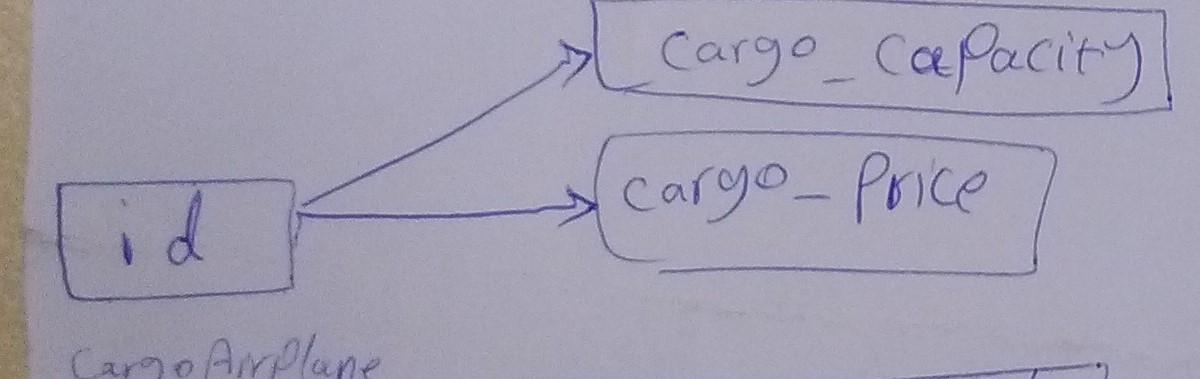 cargo_capacity
cargo_Price
id
CargoAirPlane